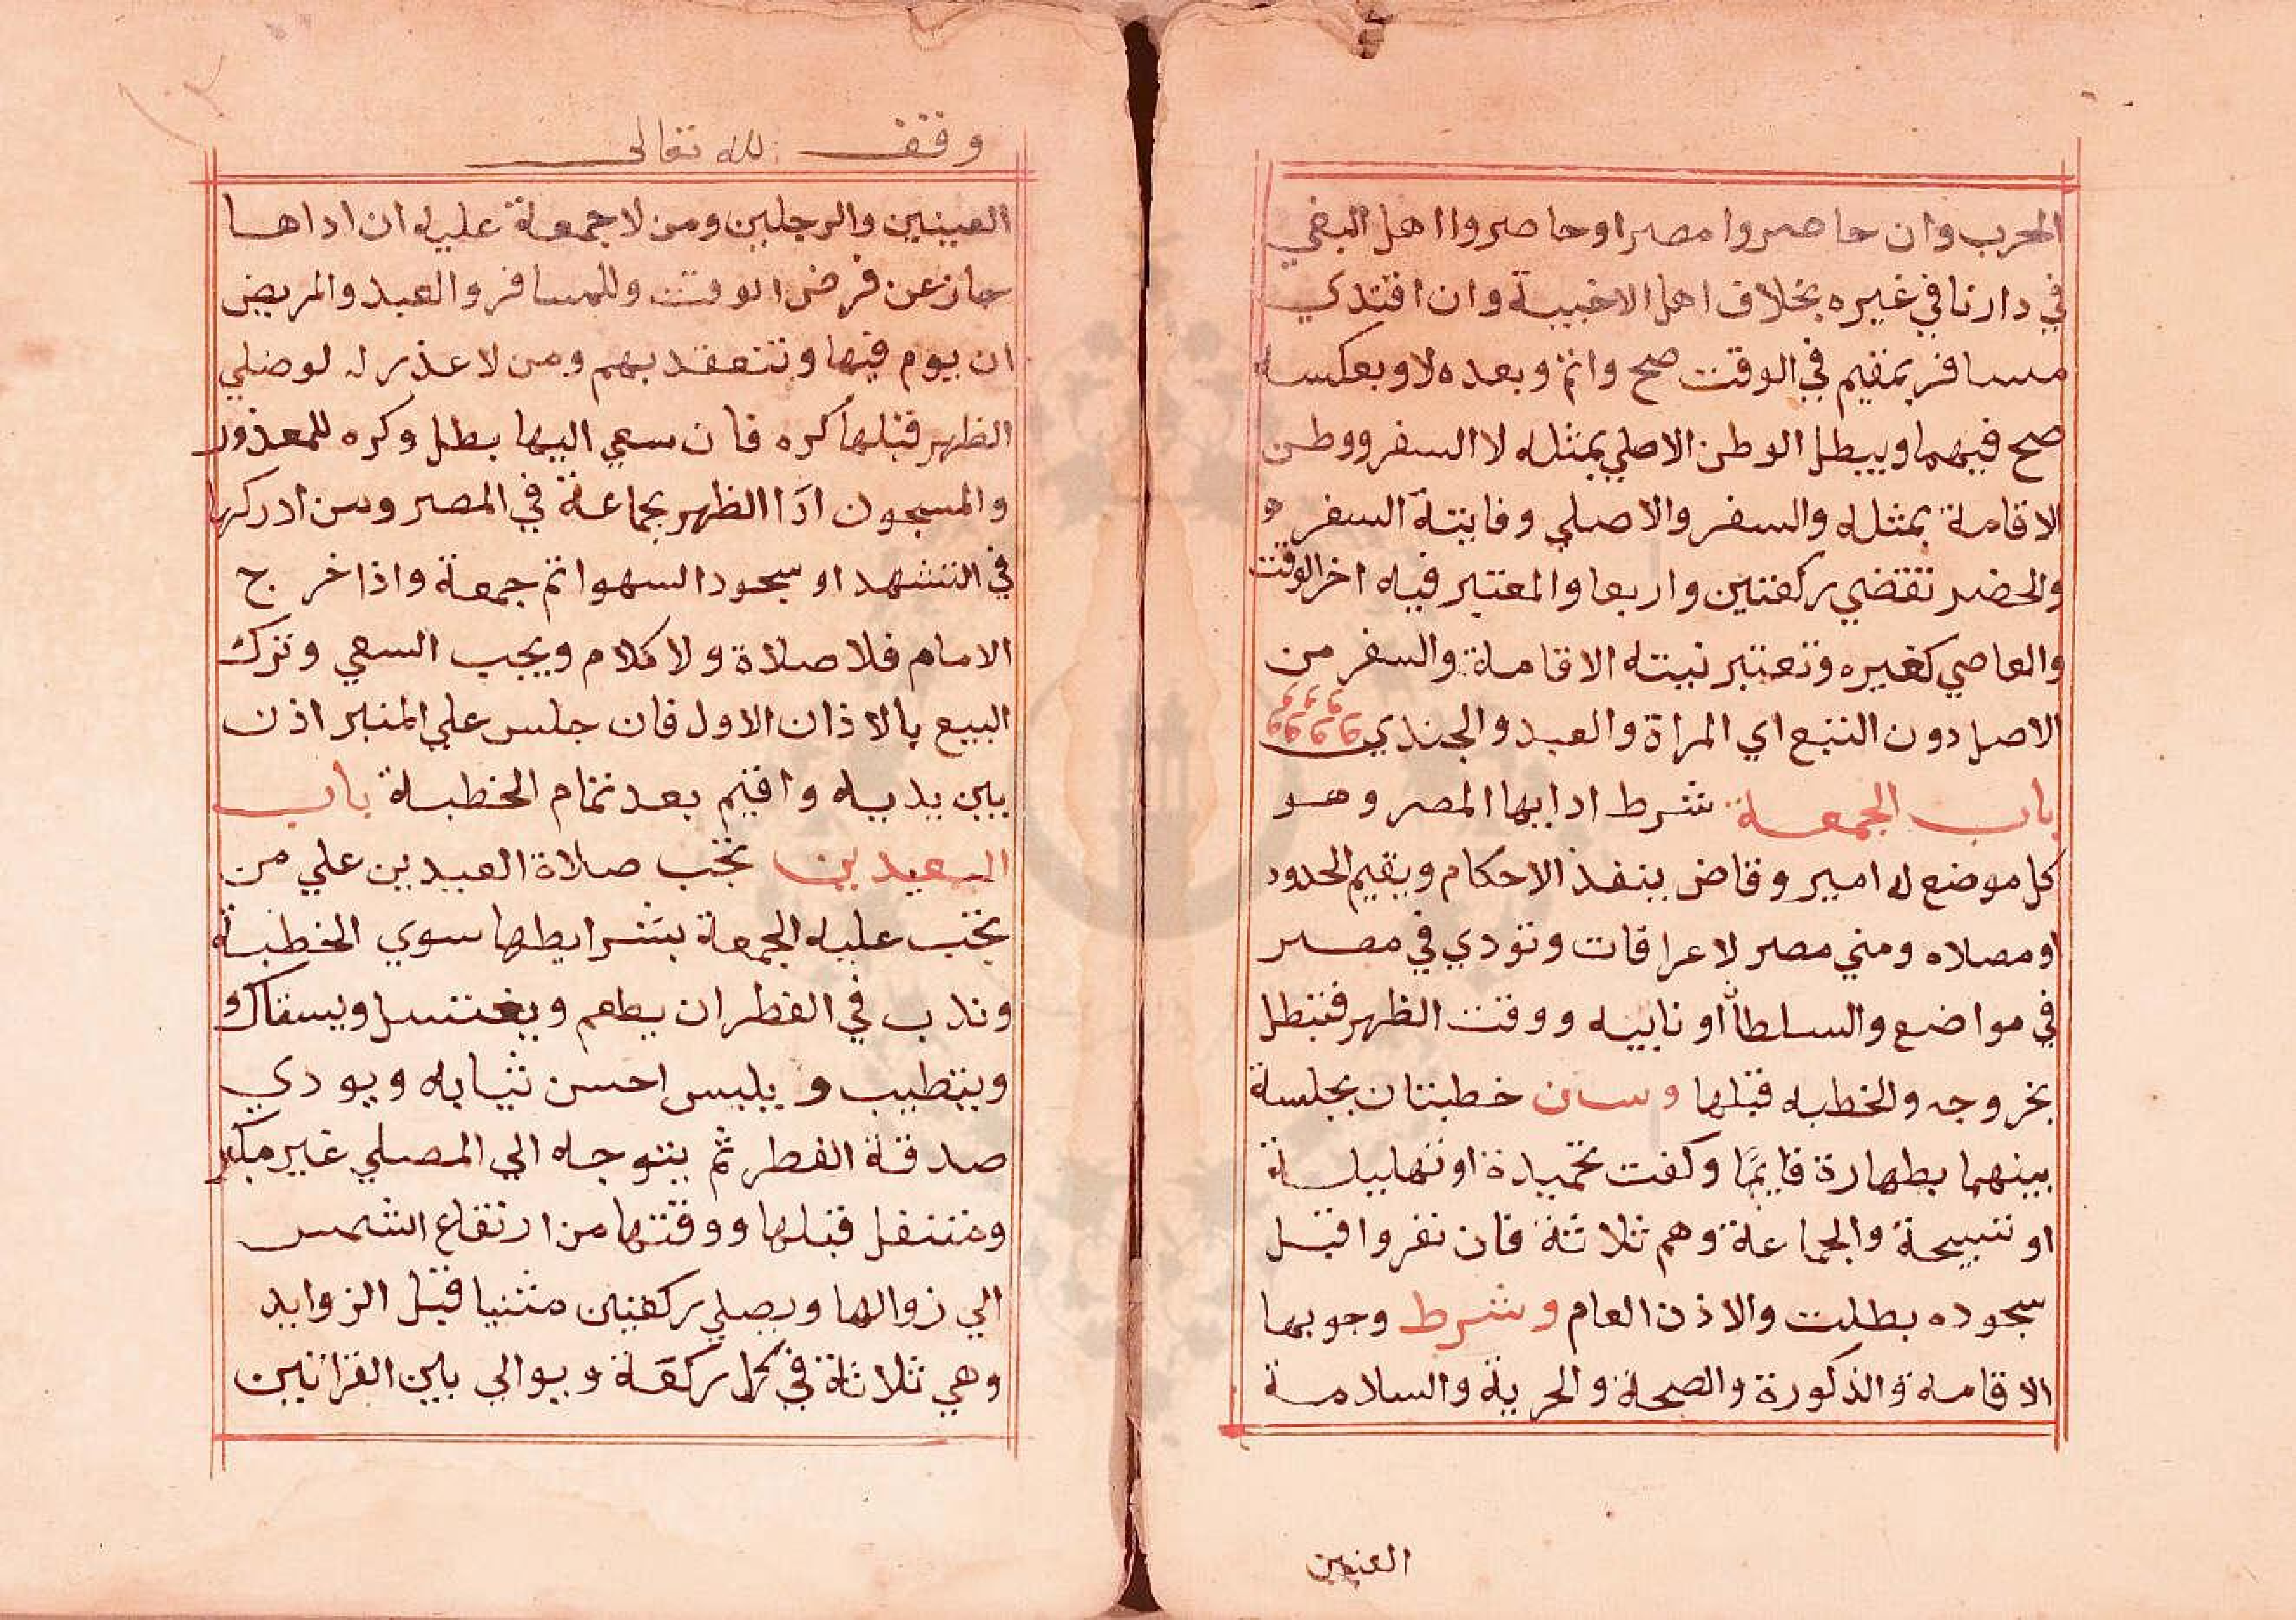 الحرب وان حاصروا مصرا او حاصروا اهل البغي
في دارنا في غيره بخلاف اهل الاخبية وان اقتدي
مسافر بمقيم في الوقت صح واتم وبعده لا وبعكسه
صح فيهما ويبطل الوطن الاصلي بمثله لا السفر ووطن
الاقامة بمثله والسفر والاصلي وفايتة السفر و
والحضر تقضي ركعتين واربعا والمعتبر فيه اخر الوقت
والعاصي كغيره وتعتبر نيته الاقامة والسفر من
الاصل دون التبع اي المراة والعبد والجندي
باب الجمعة شرط ادايها المصر وهو
كل موضع له امير وقاض ينفذ الاحكام ويقيم الحدود
او مصلاه ومني مصر لا عرافات وتودي في مصر
في مواضع والسلطان او نايبه ووقت الظهر فتبطل
بخروجه والخطبه قبلها وسن خطبتان بجلسة
بينهما بطهارة قايما وكفت تحميدة او تهليلة
او تسبيحة والجماعة وهم ثلاثة فان نفروا قبل
سجوده بطلت والاذن العام وشرط وجوبها
الاقامة والذكورة والصحة والحرية والسلامة
العينين
وقف لله تعالى
العينين والرجلين ومن لا جمعة عليه ان اداها
جاز عن فرض الوقت وللمسافر والعبد والمريض
ان يوم فيها وتنعقد بهم ومن لا عذر له لو صلي
الظهر قبلها كره فان سعي اليها بطل وكره للمعذور
والمسجون اداا الظهر بجماعة في المصر ومن ادركها
في التشهد او سجود السهو اتم جمعة واذا خرج
الامام فلا صلاة ولا كلام ويجب السعي وترك
البيع بالاذان الاول فان جلس علي المنبر اذن
بين يديه واقيم بعد تمام الخطبة باب
العيدين تجب صلاة العيدين علي من
تجب عليه الجمعة بشرايطها سوي الخطبة
وندب في الفطر ان يطعم ويغتسل ويستاك و
ويتطيب ويلبس احسن ثيابه ويودي
صدقة الفطر ثم يتوجه الي المصلي غير مكبر
ومتنفل قبلها ووقتها من ارتفاع الشمس
الي زوالها ويصلي ركعتين مثنيا قبل الزوايد
وهي ثلاثة في كل ركعة ويوالي بين القراتين